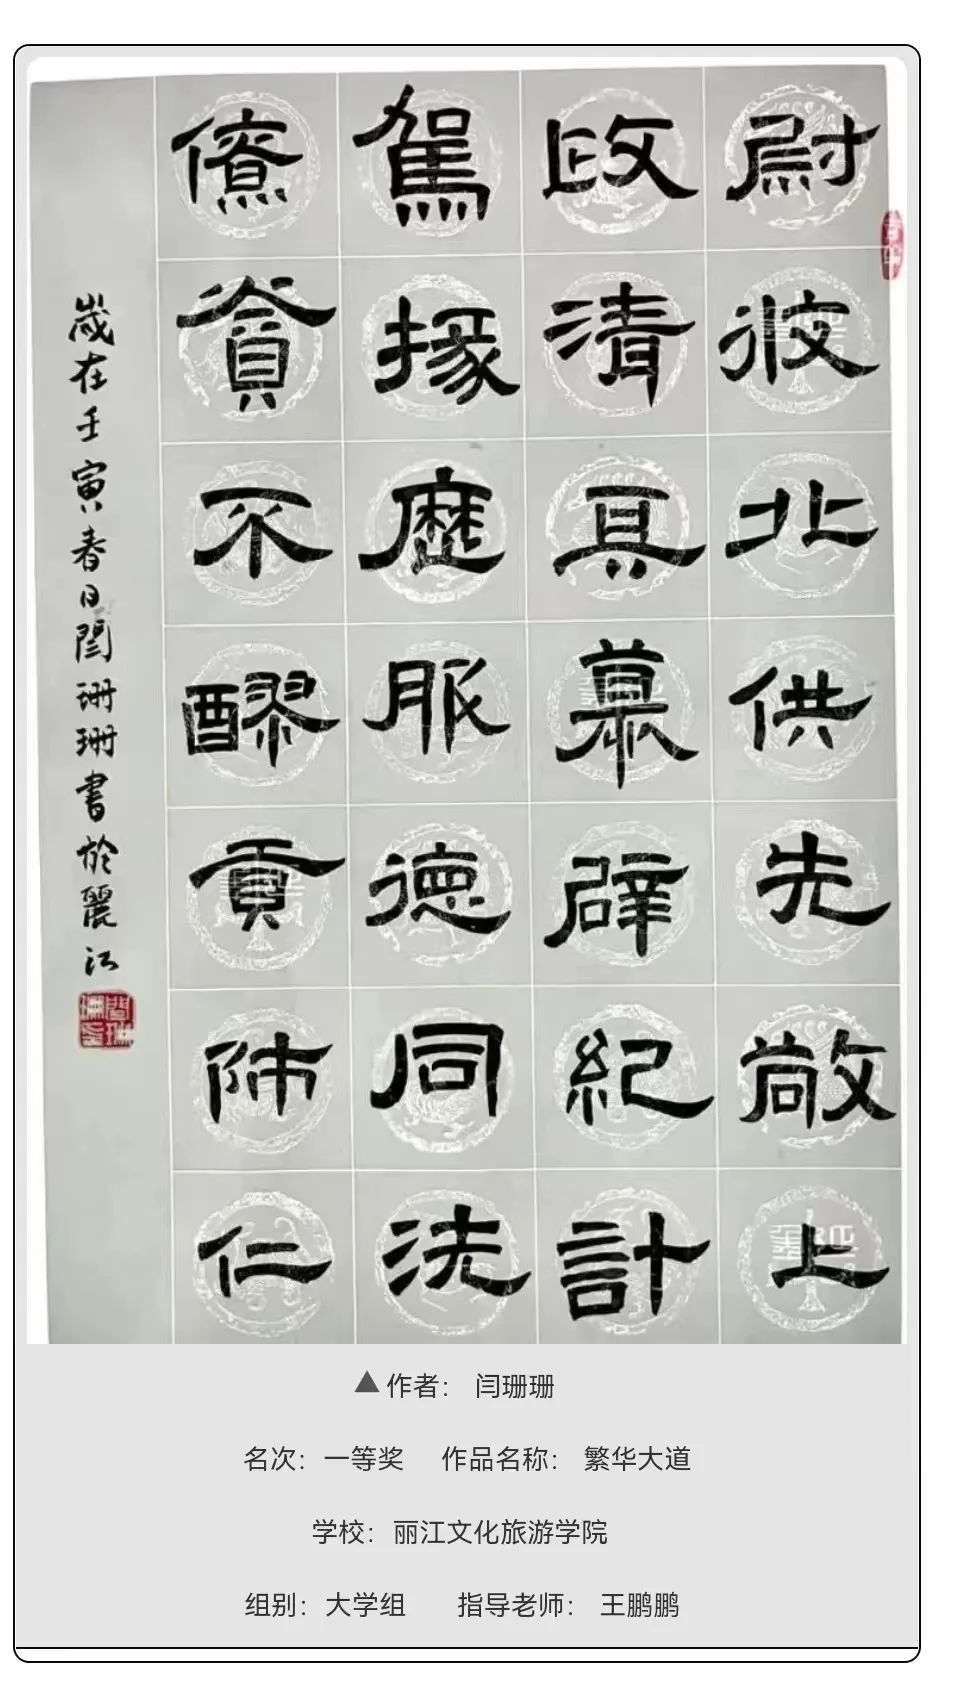 尉彼北供先敞上
政清真慕辟紀計
駕掾歷服德同法
僚貧不醪貢師仁
歲在壬寅春日閆珊珊書於麗江
▲作者： 闫珊珊
名次：一等奖 作品名称： 繁华大道
学校：丽江文化旅游学院
组别：大学组 指导老师： 王鹏鹏